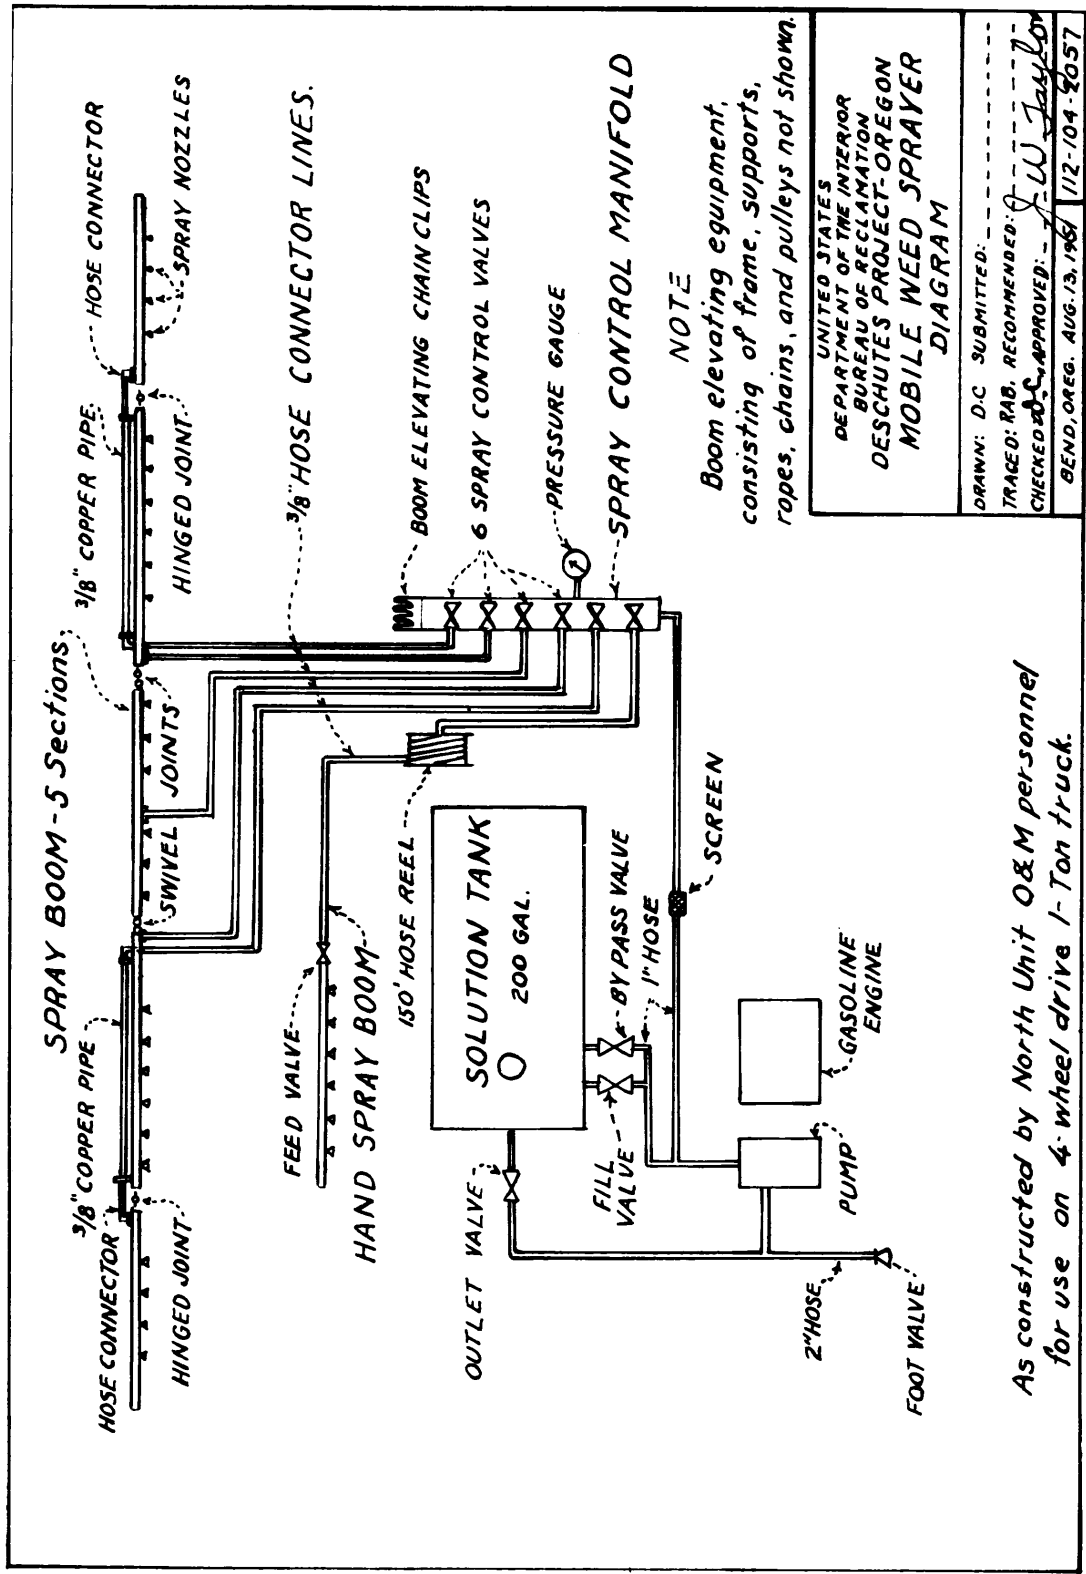 SPRAY BOOM-5 Sections
HOSE CONNECTOR
3/8" COPPER PIPE
HINGED JOINT
SWIVEL JOINTS
3/8" COPPER PIPE
HINGED JOINT
HOSE CONNECTOR
SPRAY NOZZLES
FEED VALVE
HAND SPRAY BOOM
3/8" HOSE CONNECTOR LINES.
150' HOSE REEL
BOOM ELEVATING CHAIN CLIPS
6 SPRAY CONTROL VALVES
PRESSURE GAUGE
SPRAY CONTROL MANIFOLD
OUTLET VALVE
SOLUTION TANK
200 GAL.
FILL
VALVE
BY PASS VALVE
1" HOSE
SCREEN
PUMP
GASOLINE
ENGINE
2" HOSE
FOOT VALVE
NOTE
Boom elevating equipment,
consisting of frame, supports,
ropes, chains, and pulleys not shown.
As constructed by North Unit O&M personnel
for use on 4-wheel drive 1-Ton truck.
UNITED STATES
DEPARTMENT OF THE INTERIOR
BUREAU OF RECLAMATION
DESCHUTES PROJECT-OREGON
MOBILE WEED SPRAYER
DIAGRAM
DRAWN: D.C SUBMITTED:
TRACED: RAB. RECOMMENDED:
CHECKED D.C. APPROVED: J W Taylor
BEND, OREG. AUG. 13, 1951 112-104-2057